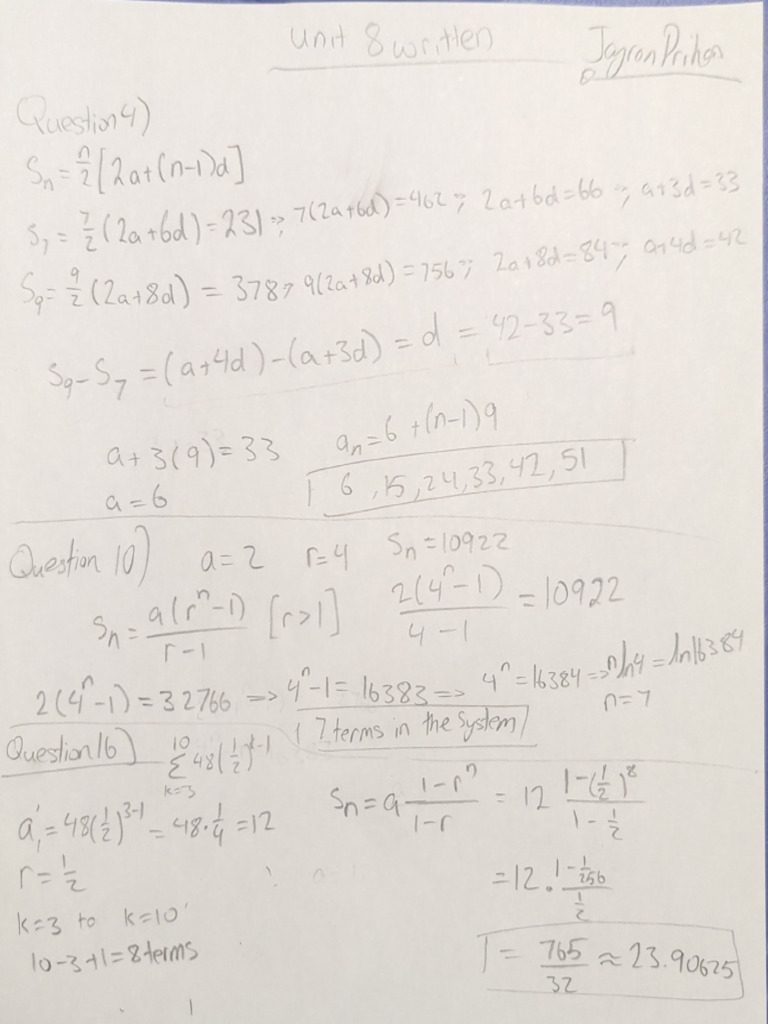 Unit 8 written
Jayron Prihan
Question 4)
Sₙ = n/2 [2a+(n-1)d]
S₇ = 7/2 (2a+6d) = 231 ⇒ 7(2a+6d) = 462 ⇒ 2a+6d=66 ⇒ a+3d=33
S₉ = 9/2 (2a+8d) = 378 ⇒ 9(2a+8d) = 756 ⇒ 2a+8d=84 ⇒ a+4d=42
S₉-S₇ = (a+4d)-(a+3d) = d = 42-33 = 9
a+3(9)=33 aₙ=6+(n-1)9
a=6 6, 15, 24, 33, 42, 51
Question 10) a=2 r=4 Sₙ=10922
Sₙ = a(rⁿ-1)/r-1 [r>1] 2(4ⁿ-1)/4-1 = 10922
2(4ⁿ-1) = 32766 => 4ⁿ-1 = 16383 => 4ⁿ = 16384 => n ln4 = ln16384
n=7
7 terms in the system
Question 16) 10 Σ k=3 48(1/2)^k-1
a₁' = 48(1/2)³⁻¹ = 48·1/4 = 12 Sₙ = a 1-rⁿ/1-r = 12 1-(1/2)⁸/1-1/2
r = 1/2 = 12 · 1-1/256 / 1/2
k=3 to k=10
10-3+1=8 terms = 765/32 ≈ 23.90625